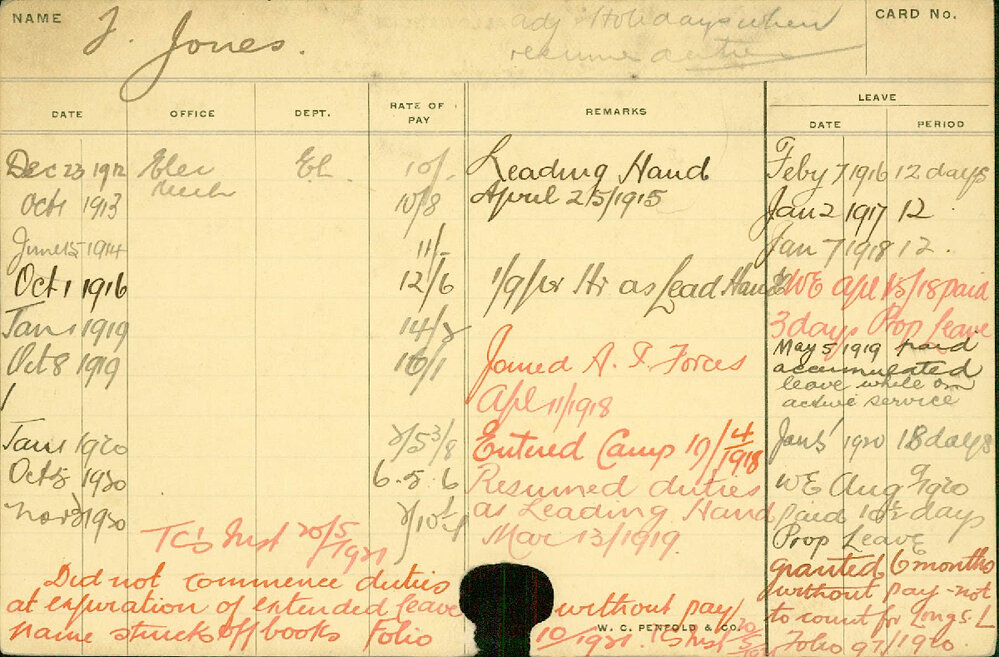 NAME
J. Jones.
adj Holidays when
resumes duties
CARD No.
DATE
OFFICE
DEPT.
RATE OF PAY
REMARKS
LEAVE
DATE
PERIOD
Dec 23 1912 Elec El 10/- Leading Hand Feby 7 1916 12 days
Oct 1 1913 10/8 April 25/1915 Jan 2 1917 12
June 15 1914 11/- Jan 7 1918 12.
Oct 1 1916 12/6 1/9/ Hr as Lead Hand WE Apl 13/18 paid
3 days Prop Leave
Jan 1 1919 14/
Oct 8 1919 16/1
Joined A. I. Forces
Apl 11/1918
May 5 1919 paid
accumulated
leave while on
active service
Jan 1 1920 Entered Camp 19/4/1918 Jan 5 1920 18 days
Oct 5 1920 6.5.6 Resumed duties WE Aug 1920
Nov 1920 as Leading Hand paid days
Mar 13/1919.
Prop Leave
TC's Inst 20/5/1921
granted 6 months
without pay - not
to count for Long S. L
Folio 97/1920.
Did not commence duties
at expiration of extended leave without pay
name struck off books Folio 10/1921 TC's Inst 20/5/21
W. C. PENFOLD & CO.